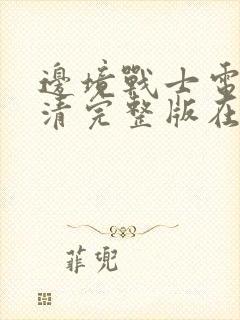 邊境戰士電
清完整版在
菲兜